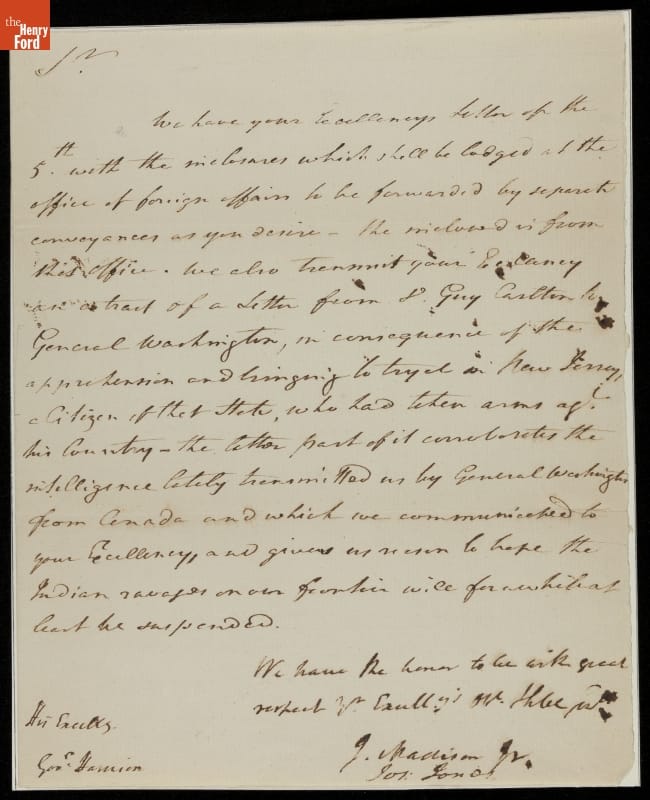 the
Henry
Ford
Sr.
We have your Excellencys Letter of the
5th. with the inclosures which shall be lodged at the
office of foreign affairs to be forwarded by separate
conveyances as you desire – the inclosed is from
this office. We also transmit your Excellency
an extract of a Letter from Sr. Guy Carlton to
General Washington, in consequence of the
apprehension and bringing to tryal in New Jersey,
a Citizen of that State, who had taken arms agt.
his Country – the latter part of it corroborates the
intelligence lately transmitted us by General Washington
from Canada and which we communicated to
your Excellency, and gives us reason to hope the
Indian ravages on our frontier will for a while at
least be suspended.
We have the honor to be with great
respect yr. Excellys obt. Hble servts
J. Madison Jr.
Jos: Jones
His Excelly.
Govr. Harrison